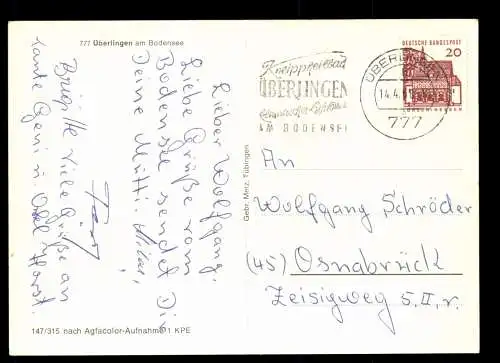 777 Überlingen am Bodensee
Lieber Wolfgang.
Liebe Grüße vom
Bodensee sendet Dir
Deine Mutti.
Viele Grüße an
Tante Geri u. Onkel Horst.
Kneippheilbad
ÜBERLINGEN
AM BODENSEE
14.4.
777
DEUTSCHE BUNDESPOST
20
Gebr. Metz, Tübingen
An
Wolfgang Schröder
(45) Osnabrück
Zeisigweg 5, II, r.
147/315 nach Agfacolor-Aufnahme 1 KPE